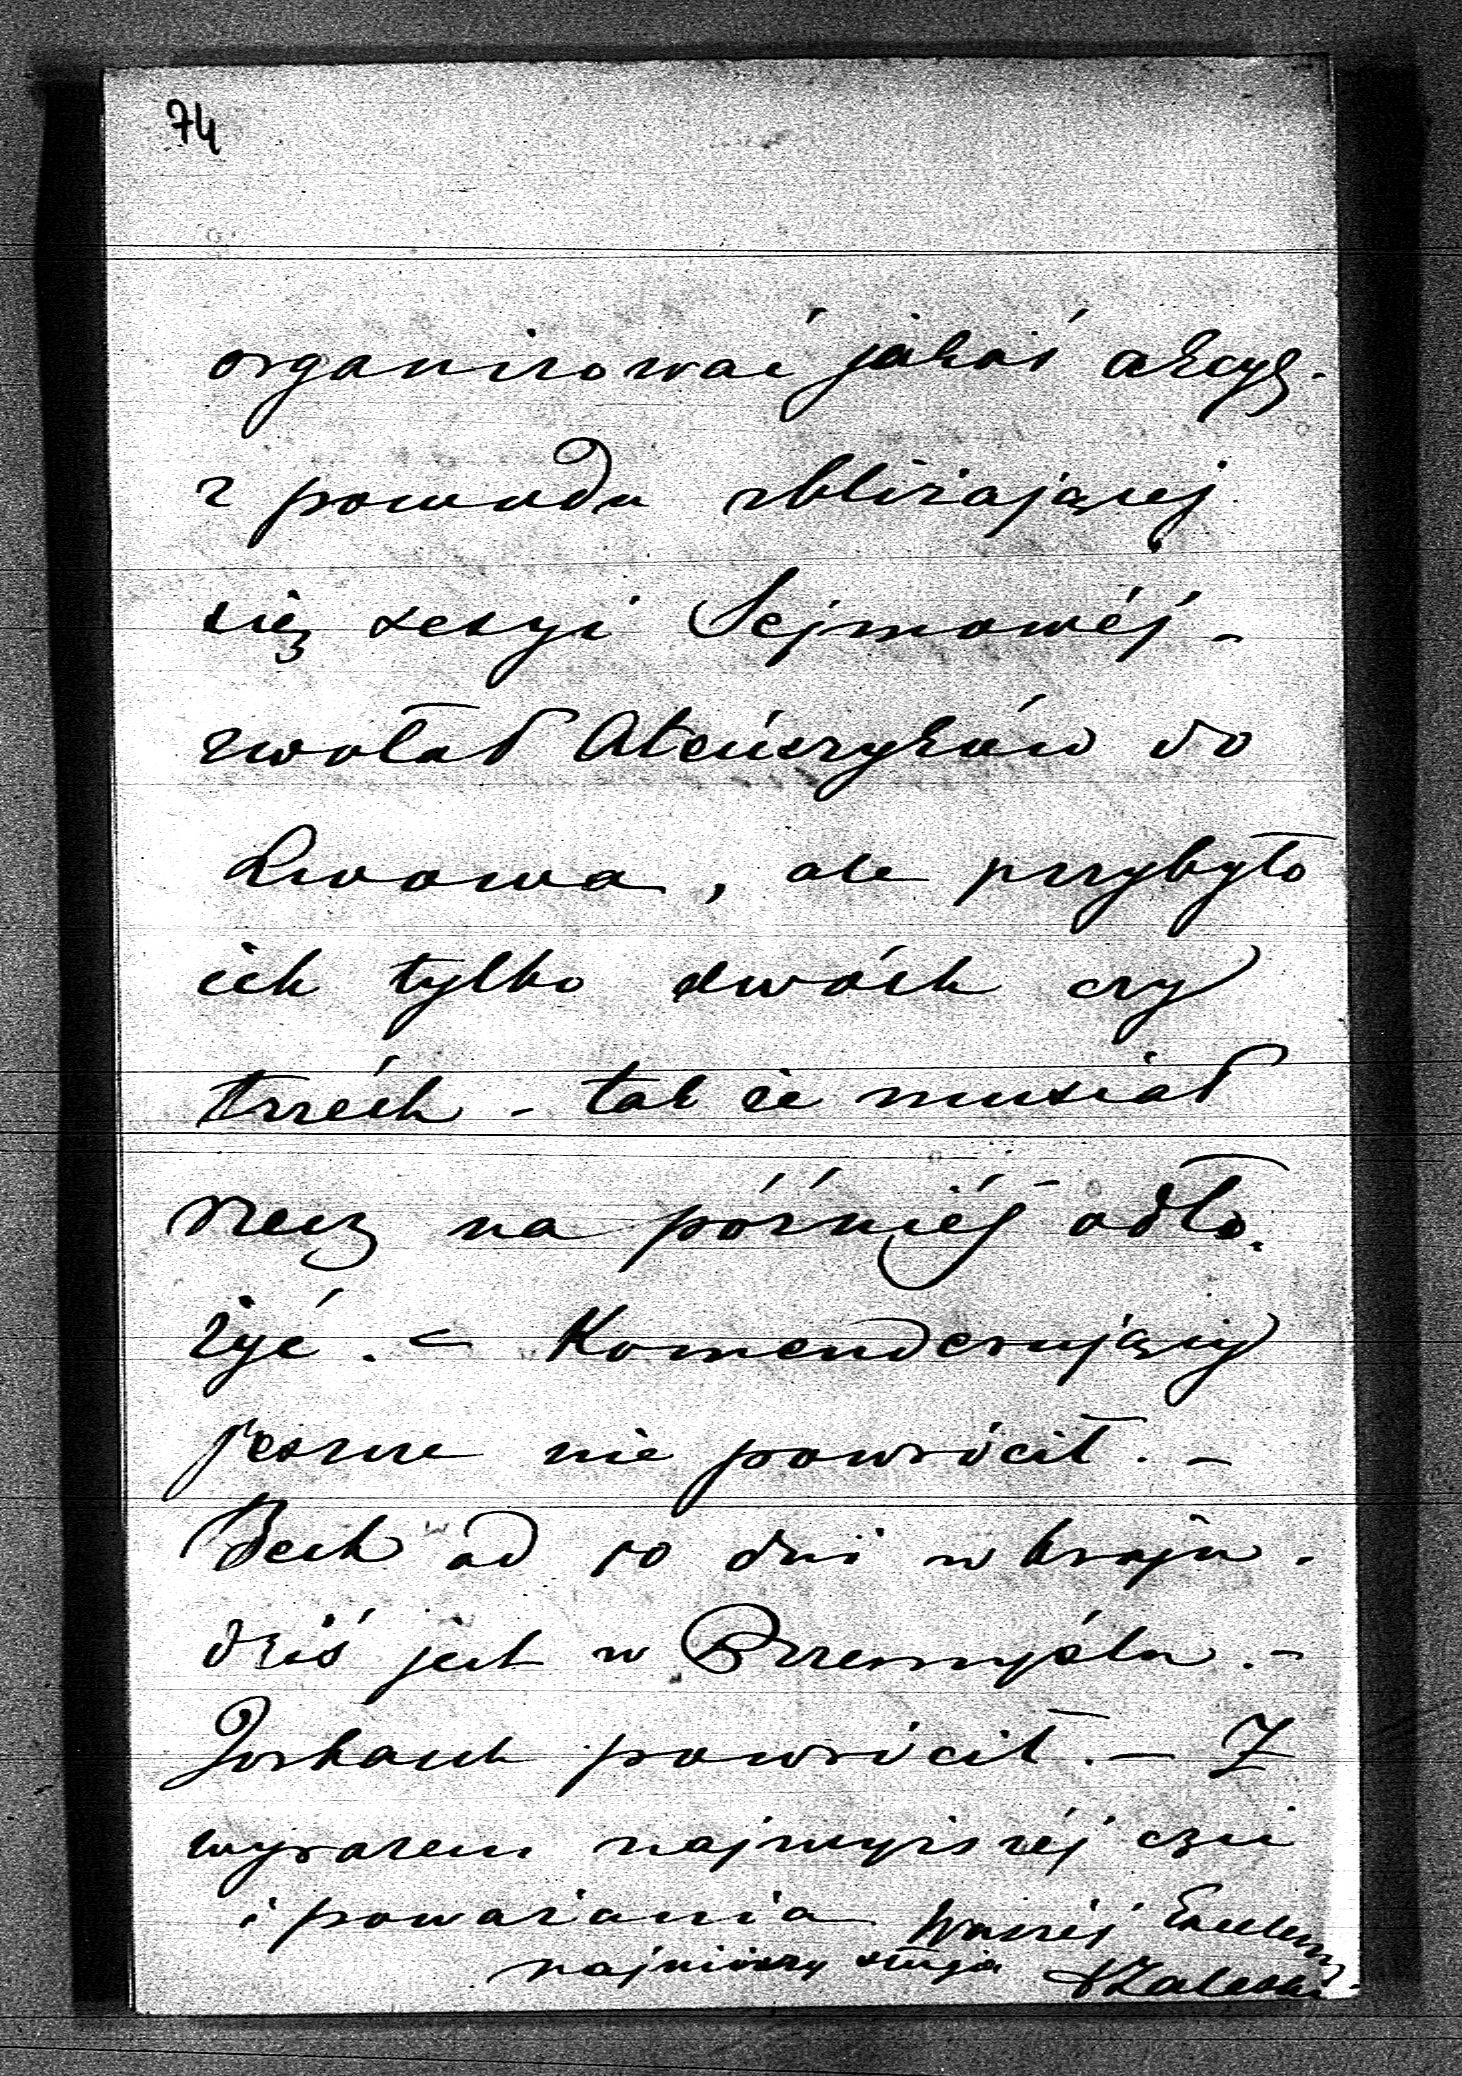 74
organizować jakąś akcyę
z powodu zbliżającej
się sesyi Sejmowéj -
zwołał Ateńczyków do
Lwowa, ale przybyło
ich tylko dwóch czy
trzéch - tak że musiał
rzecz na późniéj odło-
żyć. - Komenderujący
jeszcze nie powrócił. -
Beck od 10 dni w kraju.
dziś jest w Przemyślu. -
Jorkasch powrócił. - Z
wyrazem najwyższéj czci
i poważania Waszéj Excelency
najniższy sługa Zaleski